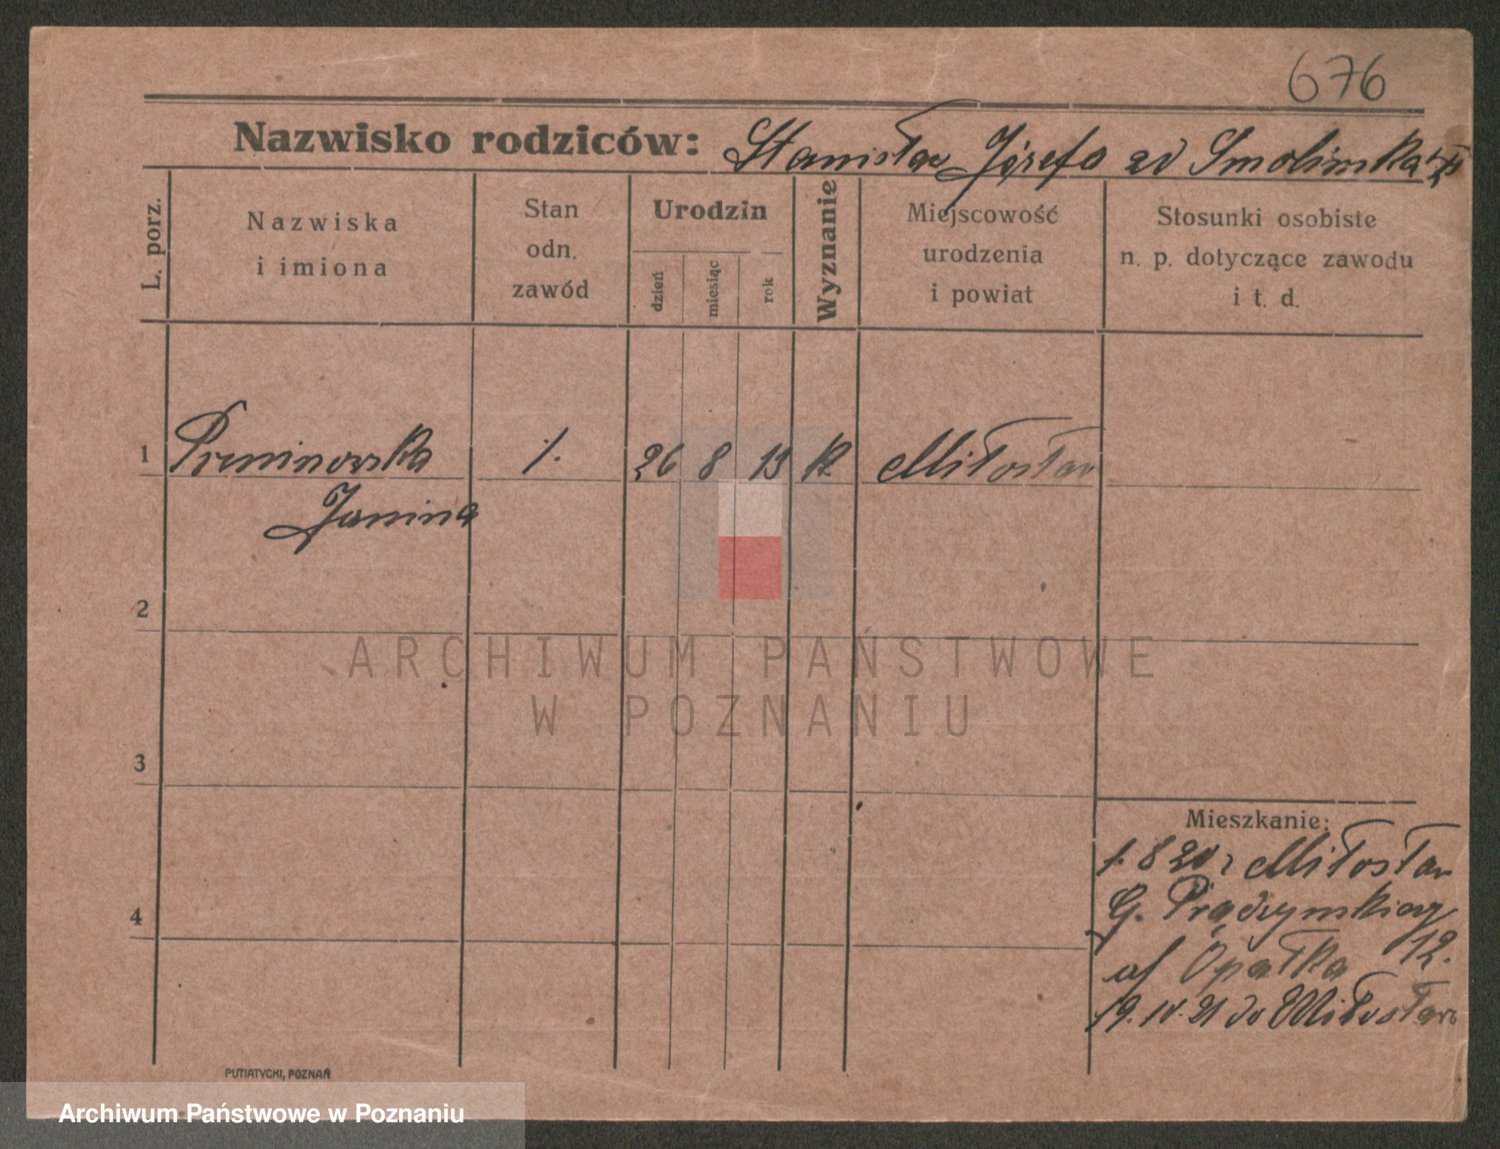 676
Nazwisko rodziców: Stanisław Józefa zd Smolinska
L. porz.
Nazwiska
i imiona
Stan
odn.
zawód
Urodzin
dzień
miesiąc
rok
Wyznanie
Miejscowość
urodzenia
i powiat
Stosunki osobiste
n. p. dotyczące zawodu
i t. d.
1 26 8 13 k Miłosław
Janina
2
3
4
Mieszkanie:
1. 8 20 z Miłosław
G. Prądzyńskiego
Opałka 12.
19. IV. 21 do Miłosław
PUTIATYCKI, POZNAŃ
ARCHIWUM PAŃSTWOWE
W POZNANIU
Archiwum Państwowe w Poznaniu